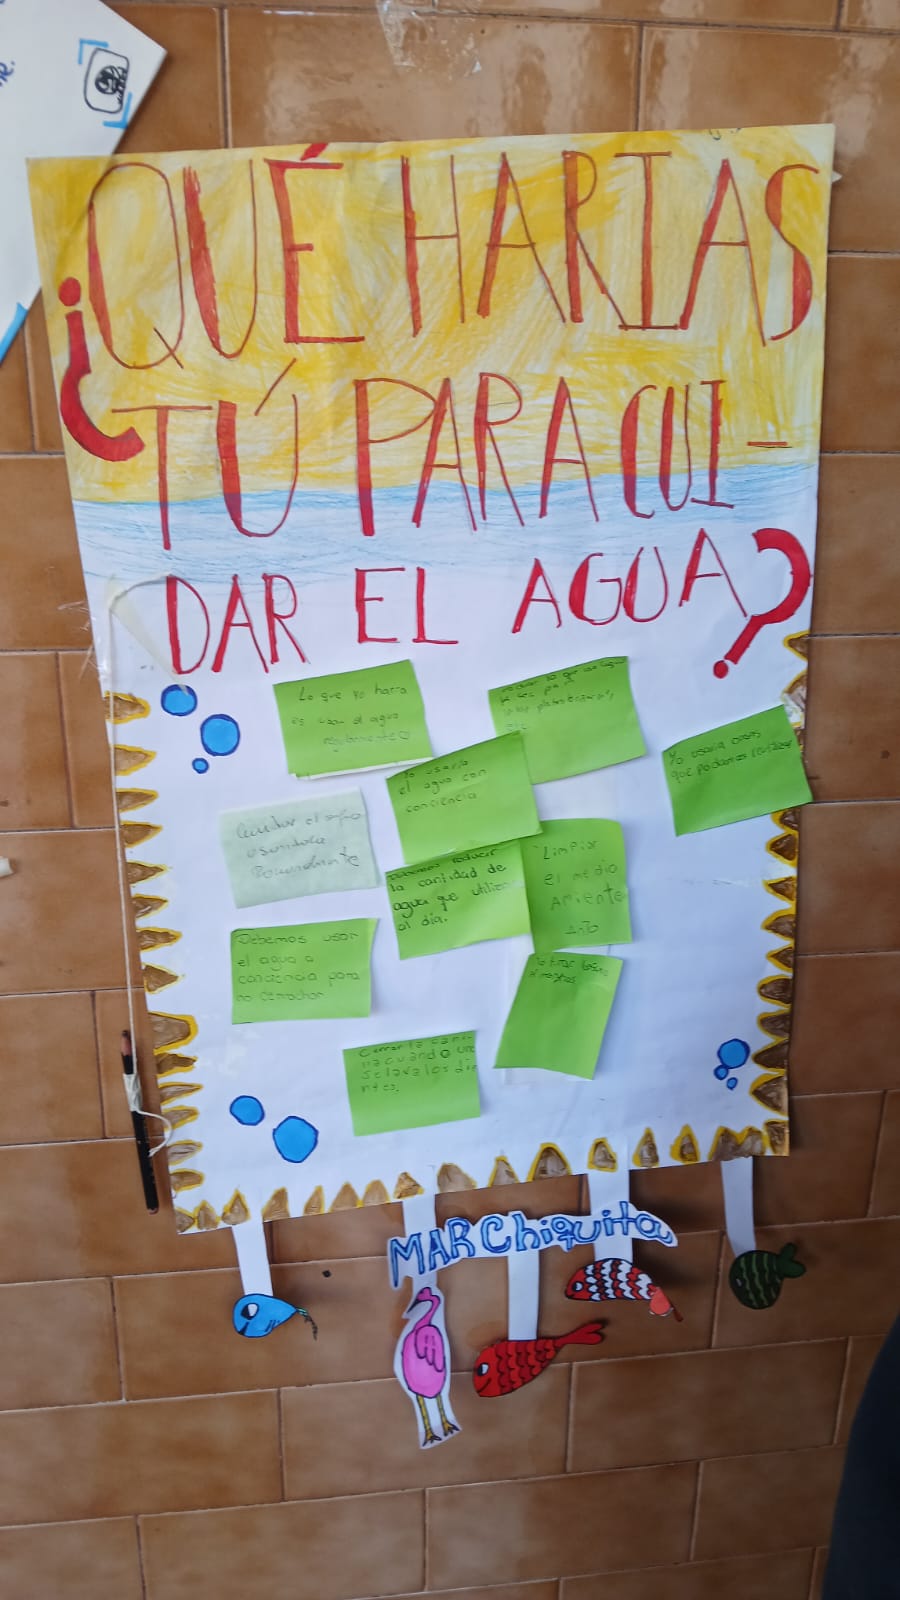 ¿QUÉ HARIAS
TÚ PARA CUI-
DAR EL AGUA?
Lo que yo haría
es usar el agua
regularmente
Yo usaría
el agua con
conciencia
Yo usaria cosas
que podamos reutilizar
Cuidar el agua
usandola
reducir
la cantidad de
agua que utiliza
al día.
Limpiar
el medio
Debemos usar
el agua a
conciencia para
no
No tirar basura
Cerrar la cani-
lla cuando uno
se lava los die-
ntes.
MARChiquita